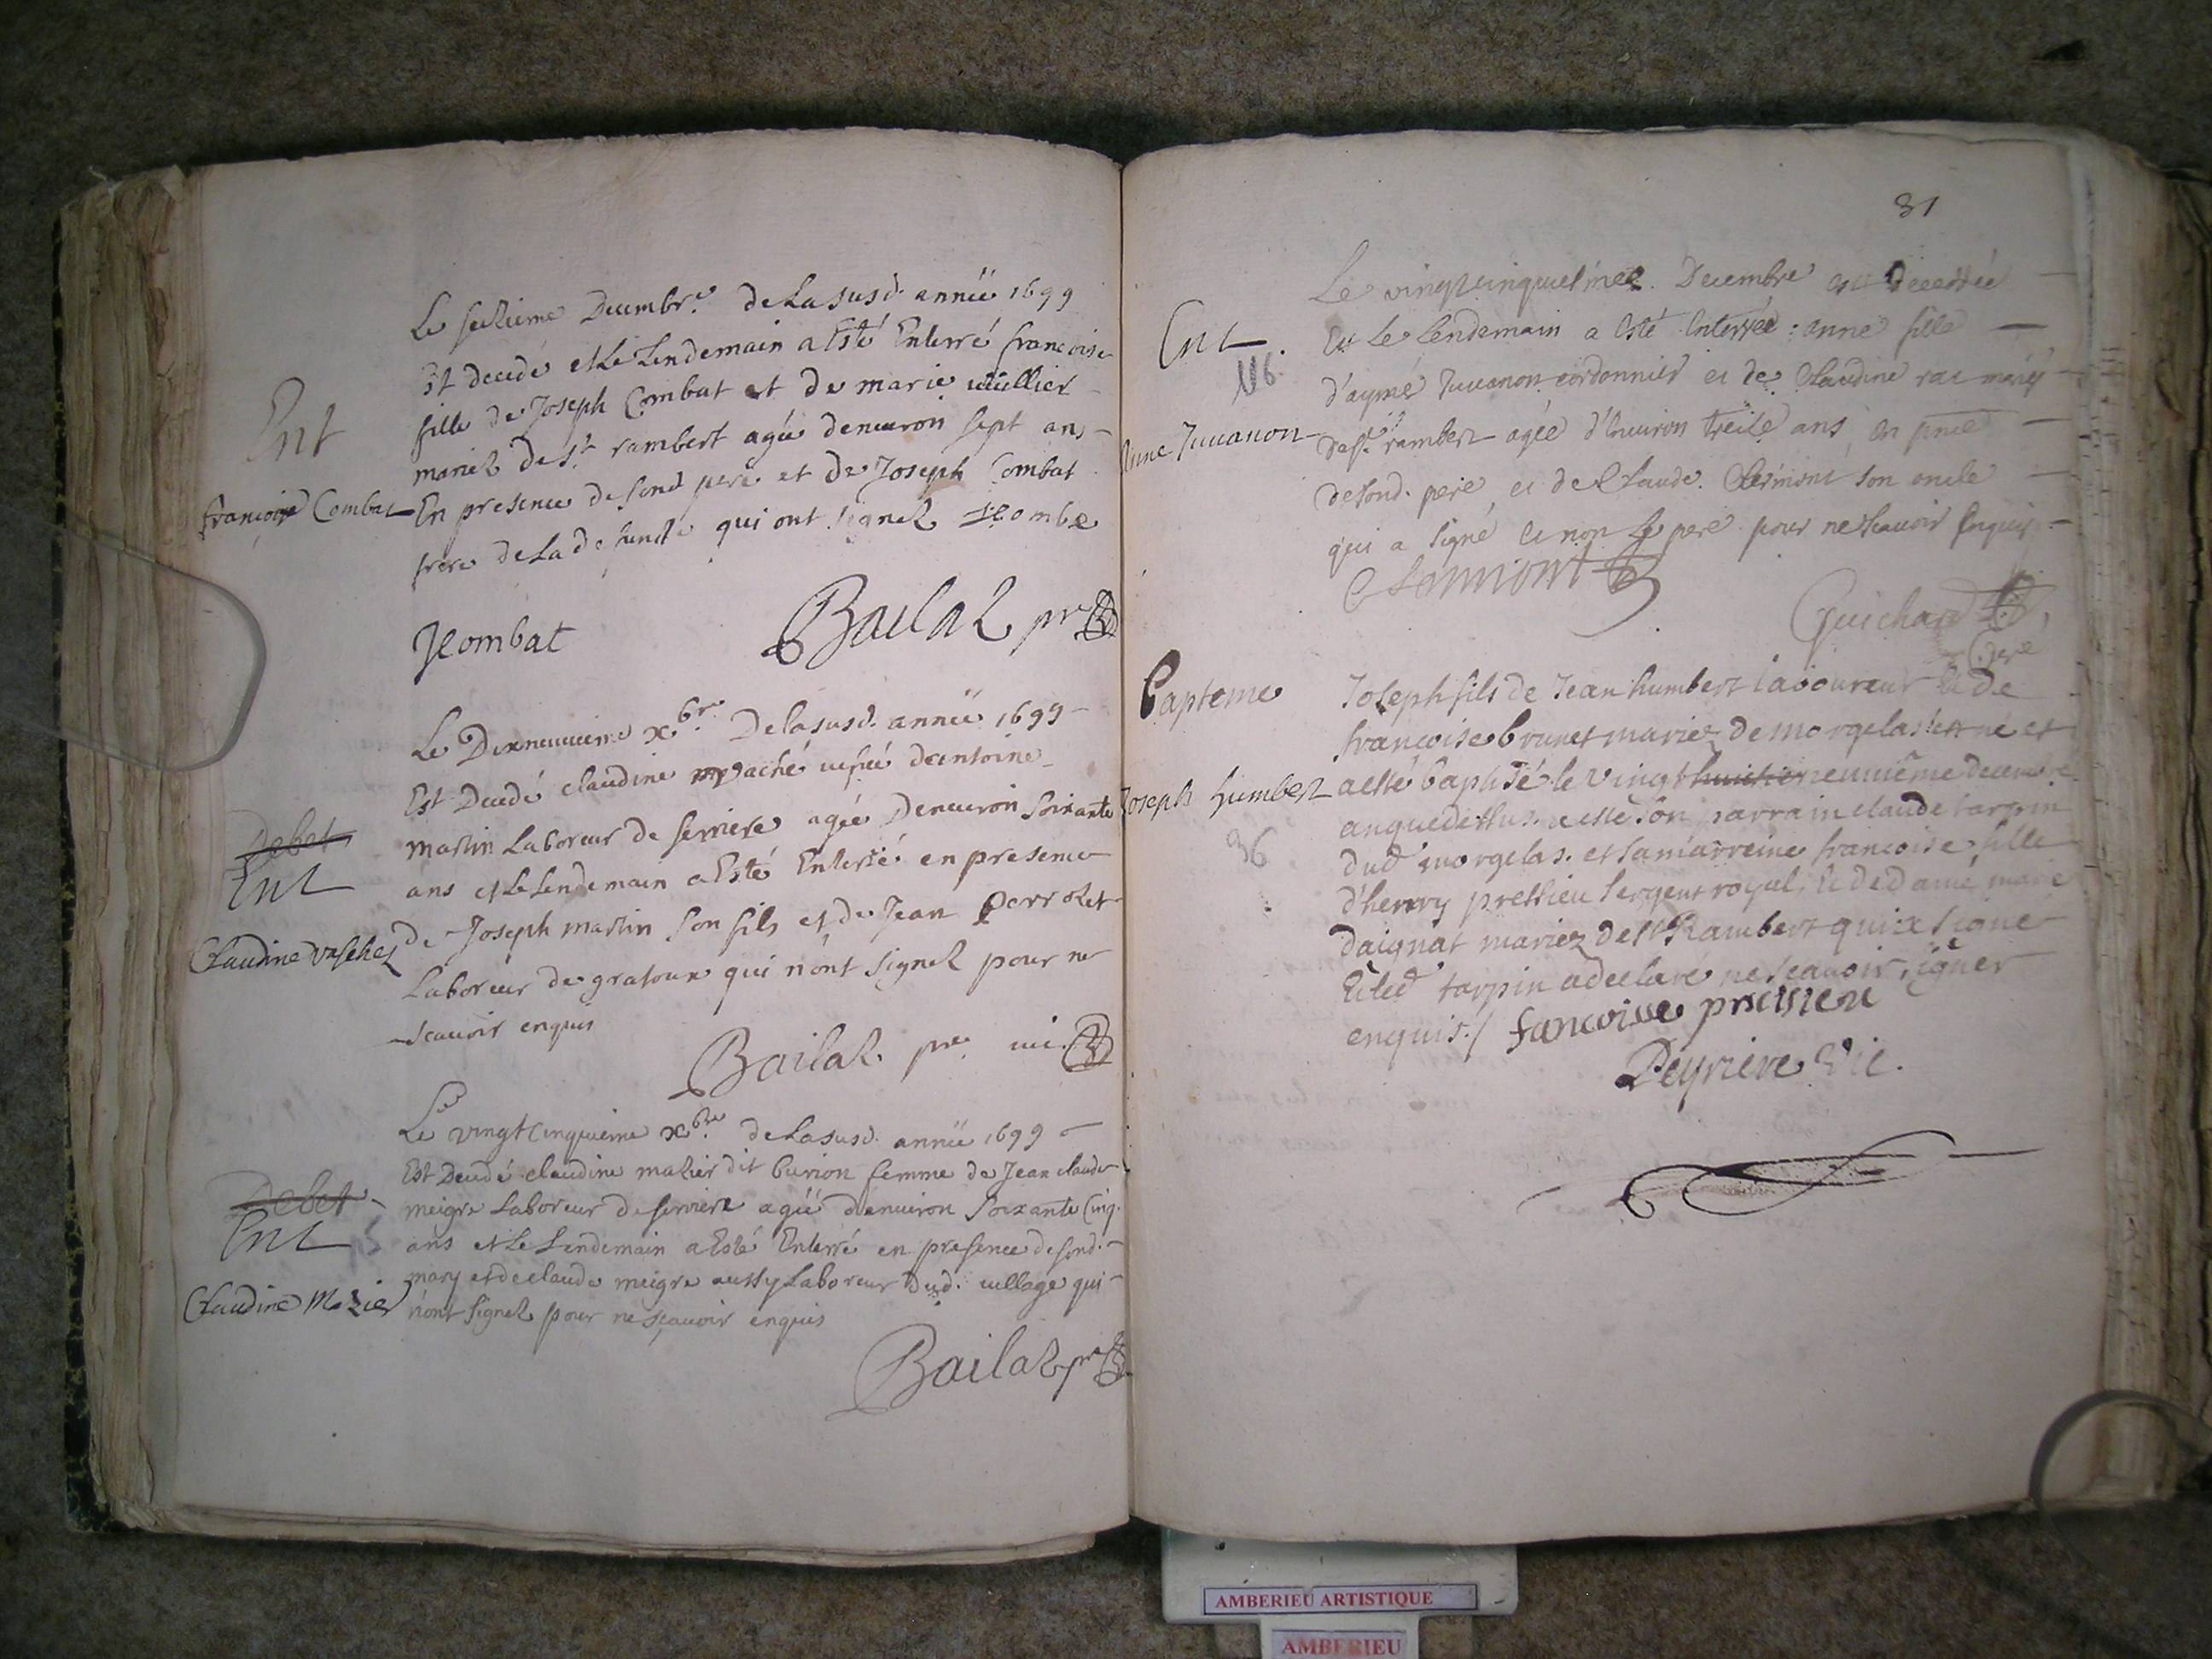 Le seizieme Decembre. de La susd. année 1699
Est decedé et Le Lendemain a Esté Enterré francoise
fille de Joseph Combat et de marie
Ent
mariez de st. rambert agée denuiron sept ans
francoise Combat
En presence de sond pere et de Joseph Combat
frere de La defuncte qui ont signez
JCombat
Bailaz pr
Le Dixneuuieme xbre. De la susd. année 1699
Est Decedé claudine vefue dantoine
Debet
martin Laboreur de serriere agée Denuiron soixante
Ent
ans et Le Lendemain a Esté Enterré en presence
Claudine
de Joseph martin son fils et de Jean perrozet
Laboreur de gratoux qui n'ont signez pour ne
scauoir enquis
Bailaz. pre. vic.
Le vingtcinquieme xbre. de La susd. année 1699
Est Decedé claudine mazier dit burion femme de Jean claude
Debet
meigre Laboreur de serriere agée denuiron soixante cinq.
Ent
ans et Le Lendemain a Esté Enterré en presence de sond.
mary et de claude meigre aussy Laboreur dud. uillage qui
Claudine Mazier
n'ont signez pour ne sçauoir enquis
Bailaz pr
31
Le vingtcinquiesme. Decembre est decedée
Ent.
Et Le Lendemain a esté enterrée : anne fille
116.
d'aymé Juuanon cordonnier et de Claudine rat mariés
Anne Juuanon
de st. rambert agée d'enuiron treize ans en pnce
de sond. pere et de Claude. Clermont son oncle
qui a signé et non Le pere pour ne scauoir enquis.
Clermont
Guichard
Curé
Bapteme
Joseph fils de Jean humbert laboureur et de
francoise brunet mariez de morgelas est né et
Joseph humbert
a esté baptisé le vingt huictie neuuiême decembre
36
an que dessus. a esté son parrain claude tarpin
dud morgelas. et sa marreine francoise fille
d'henry pressieu sergent royal, et de dame marie
daignat mariez de st Rambert qui a signé
Et led tarpin a declaré ne scauoir signer
enquis./ fancoisse
Peyriere Vic.
AMBERIEU ARTISTIQUE
AMBERIEU